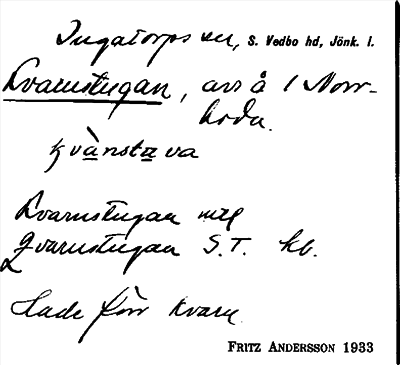 Ingatorps sn, S. Vedbo hd, Jönk. l.
Kvarnstugan, avs å 1 Norr-
boda.
kvànstava
Kvarnstugan mtl
Qvarnstugan S.T. kb.
Hade förr kvarn
FRITZ ANDERSSON 1933